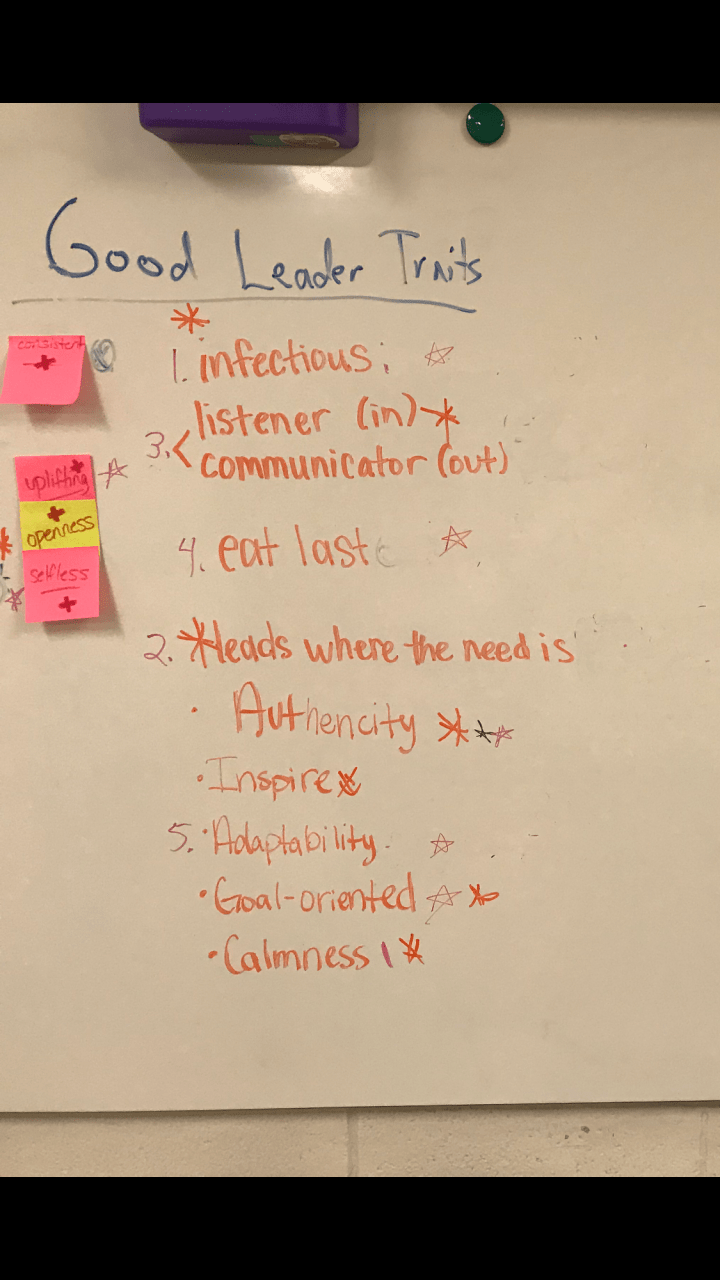 Good Leader Traits
consistent
1. infectious
listener (in)
3. <
communicator (out)
uplifting
openness
selfless
4. eat last
2. *leads where the need is
• Authencity
• Inspire
5. • Adaptability
• Goal-oriented
• Calmness